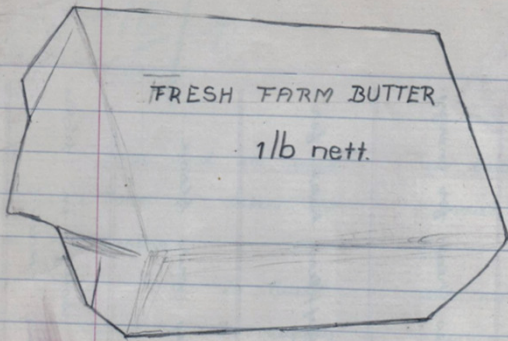 FRESH FARM BUTTER
1lb nett.